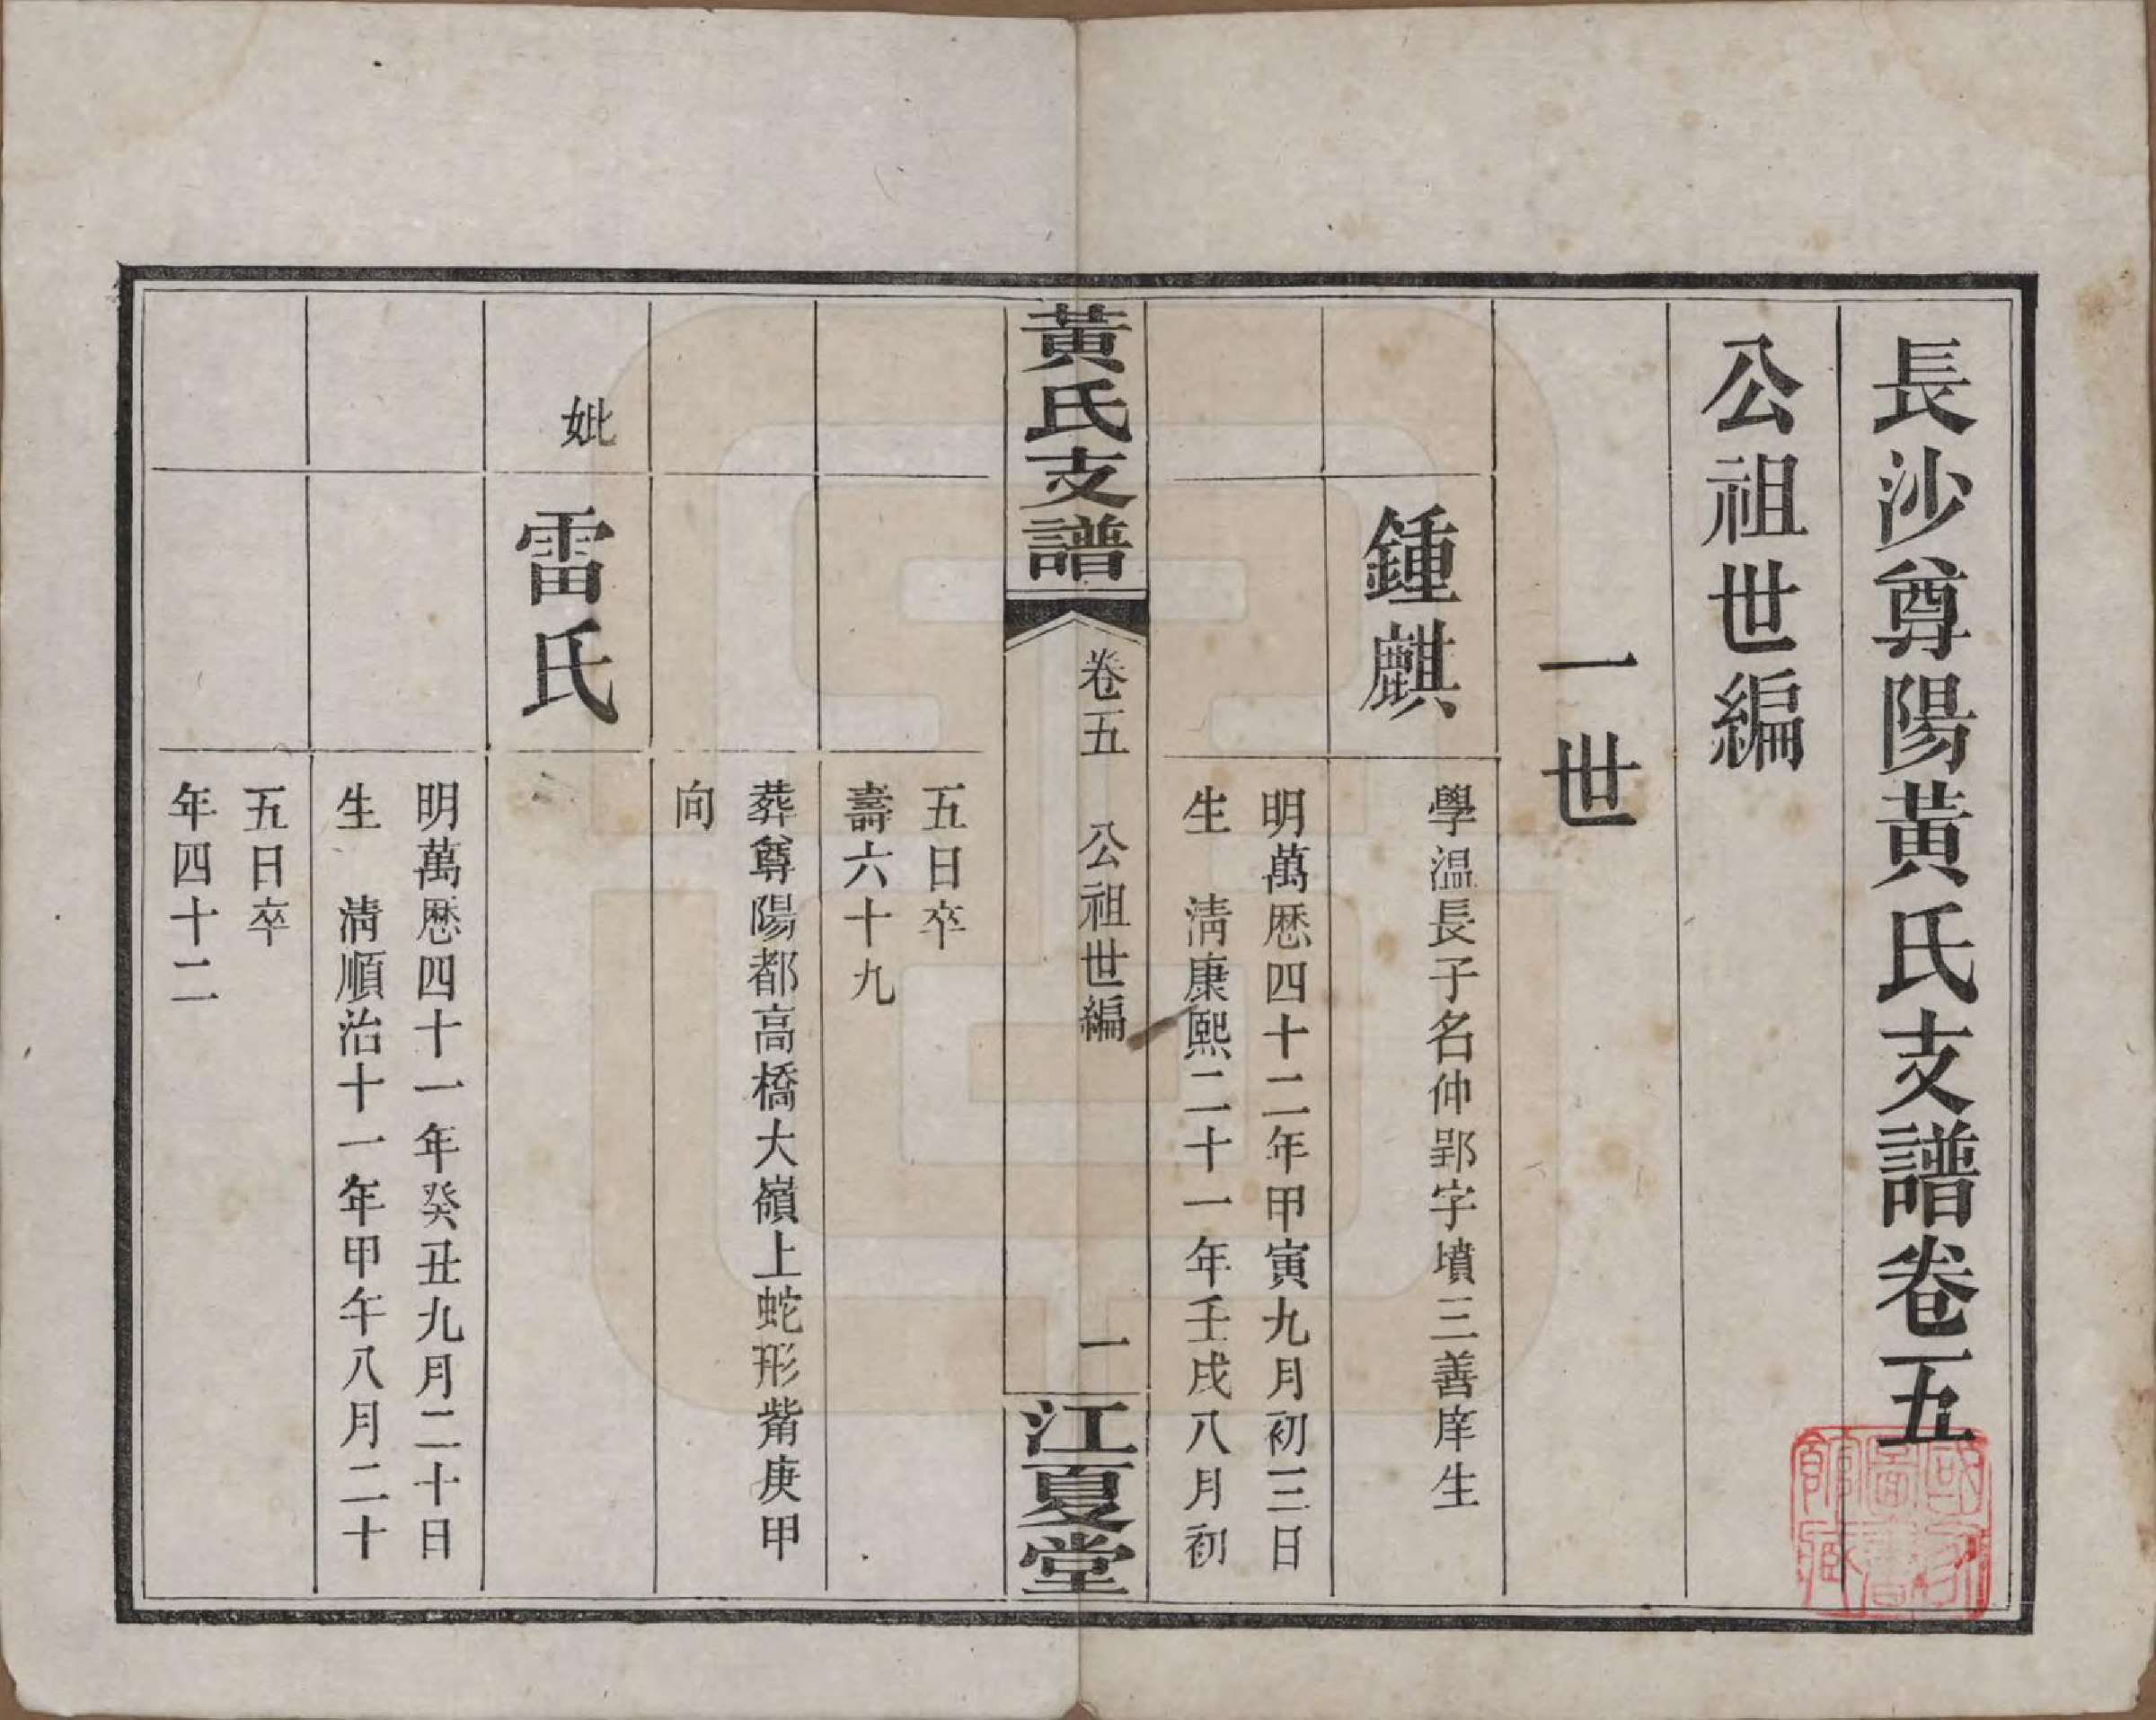 長沙尊陽黄氏支譜卷五
公祖世編
一世
鍾麒
學温長子名仲郢字墳三善庠生
明萬厯四十二年甲寅九月初三日
生 淸康熙二十一年壬戌八月初
黃氏支譜
卷五 公祖世編
一
江夏堂
五日卒
壽六十九
葬尊陽都高橋大嶺上蛇形觜庚甲
向
妣
雷氏
明萬厯四十一年癸丑九月二十日
生 淸順治十一年甲午八月二十
五日卒
年四十二
國家圖書館藏